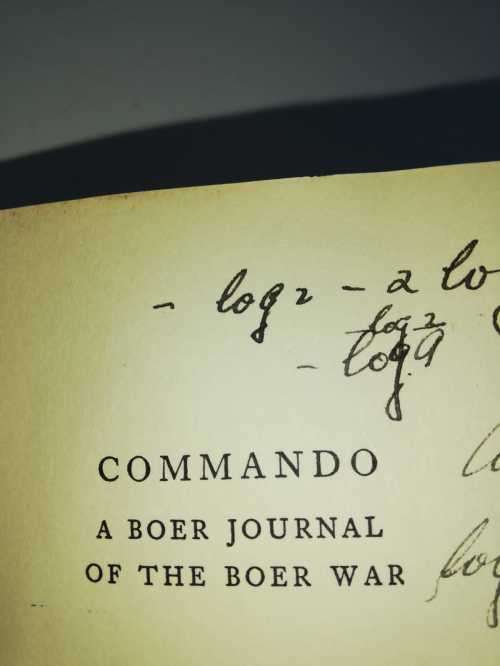 - log 2 - 2 lo
- log 2
- log 9
COMMANDO
A BOER JOURNAL
OF THE BOER WAR
log